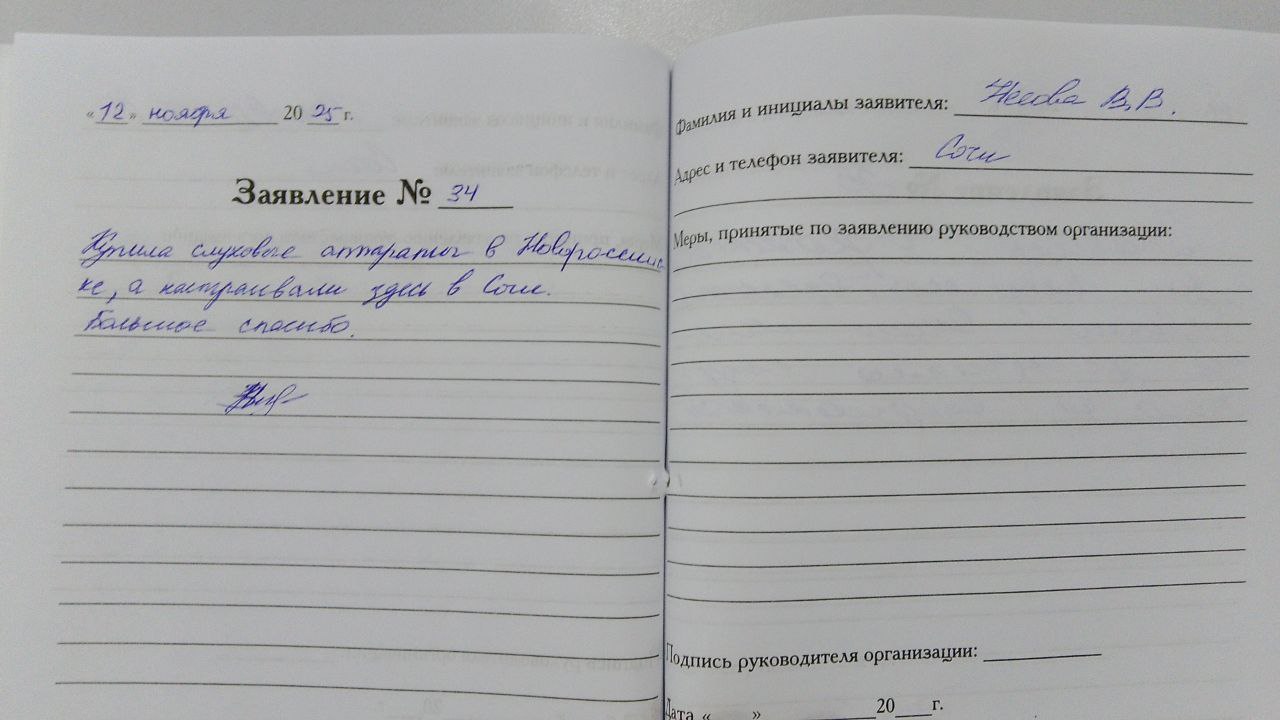 «12» ноября 2025 г.
Заявление № 34
Купила слуховые аппараты в Новороссийс-
ке, а настраивали здесь в Сочи.
Большое спасибо.
Фамилия и инициалы заявителя: В.В.
Адрес и телефон заявителя: Сочи
Меры, принятые по заявлению руководством организации:
Подпись руководителя организации:
Дата « » 20 г.